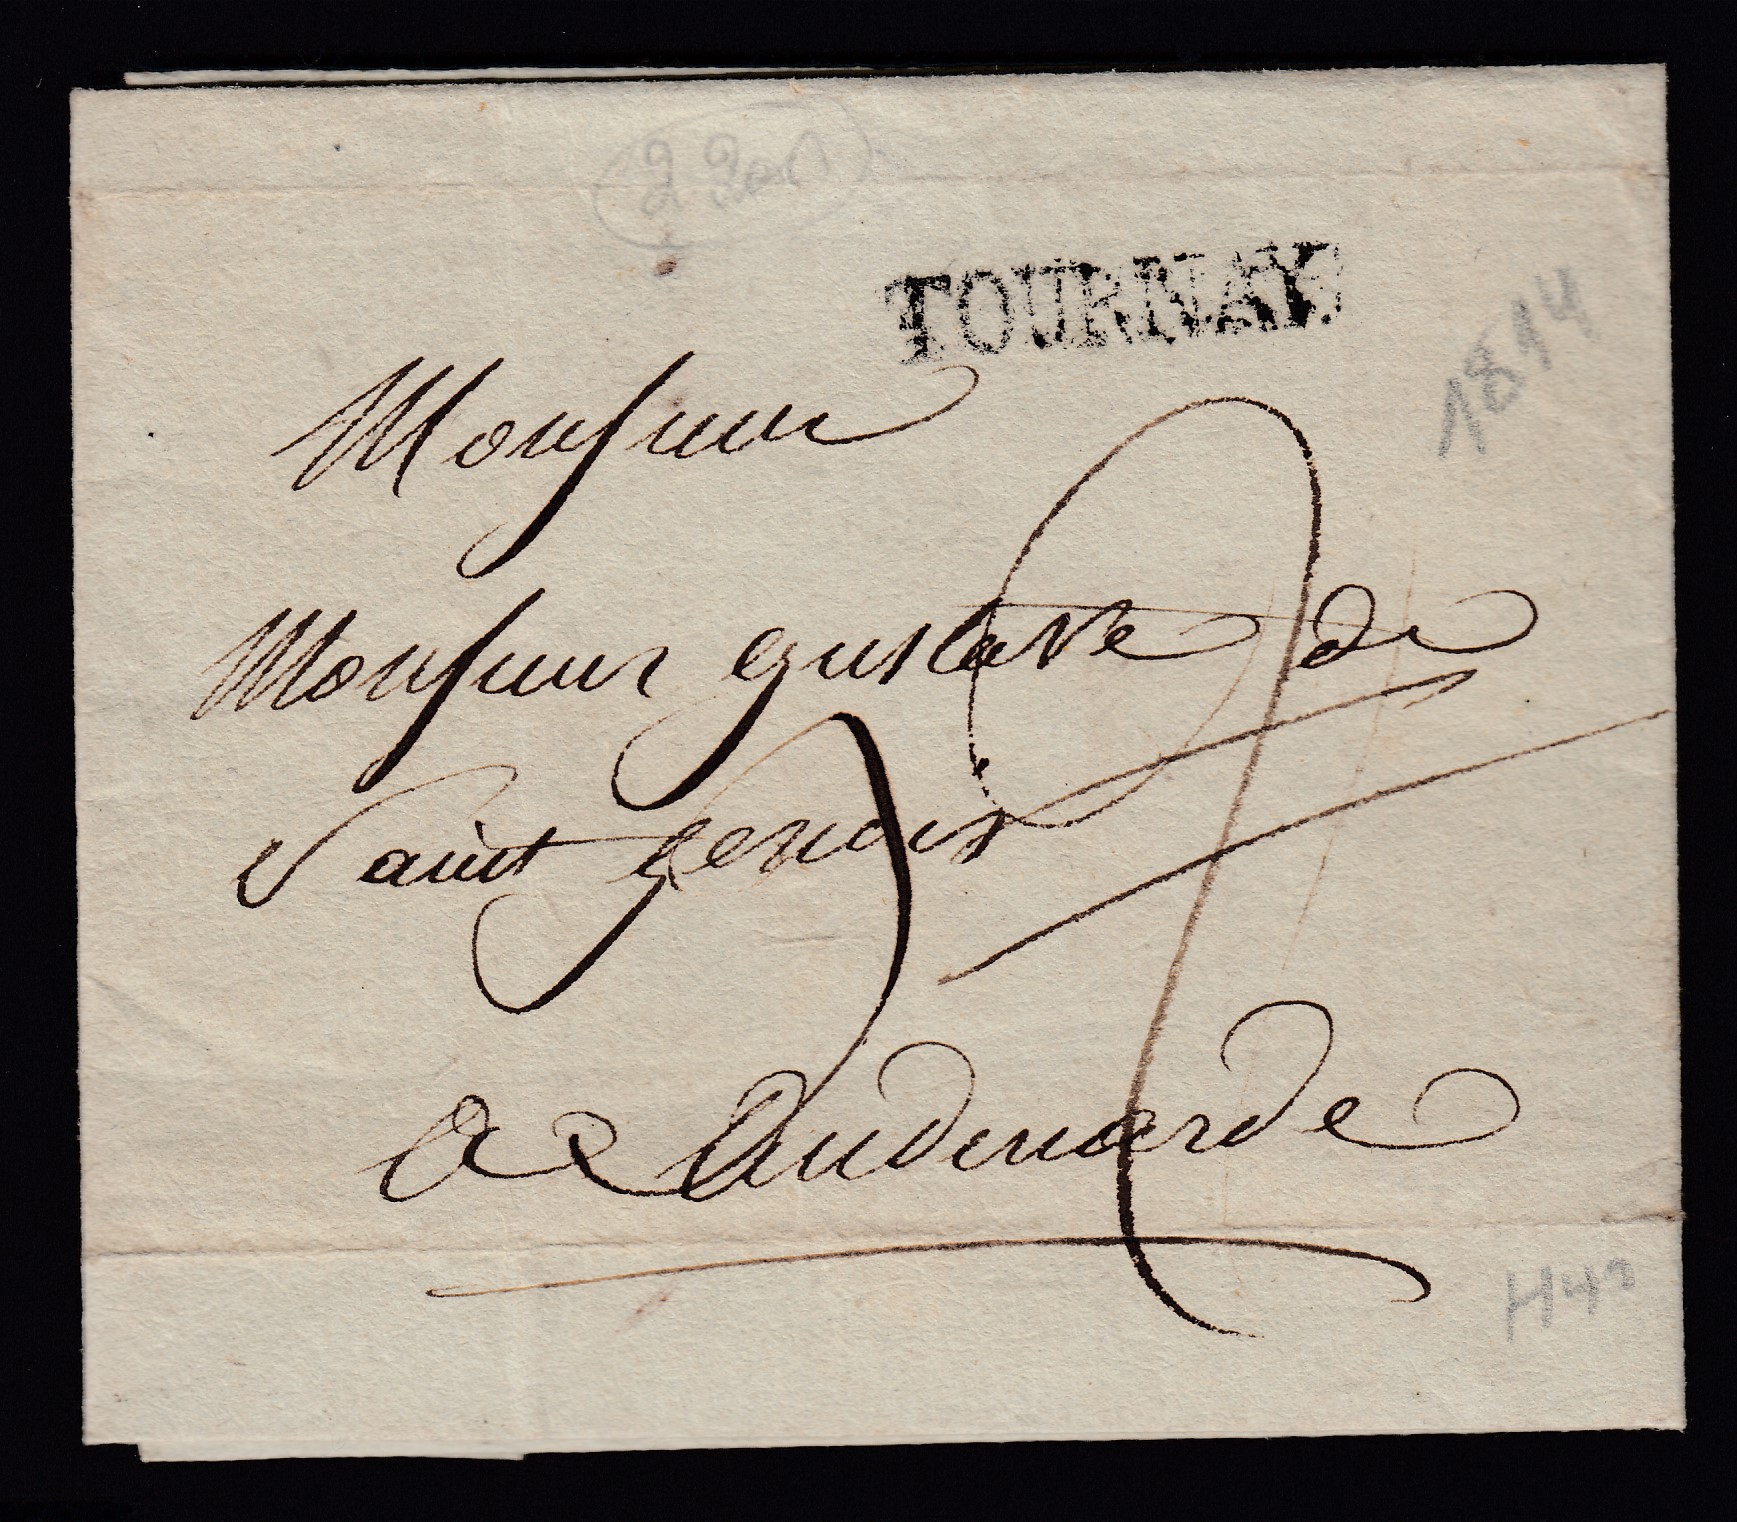 TOURNAY.
1814
Monsieur
Monsieur gustave de
Saint genois
a Audenarde
H40